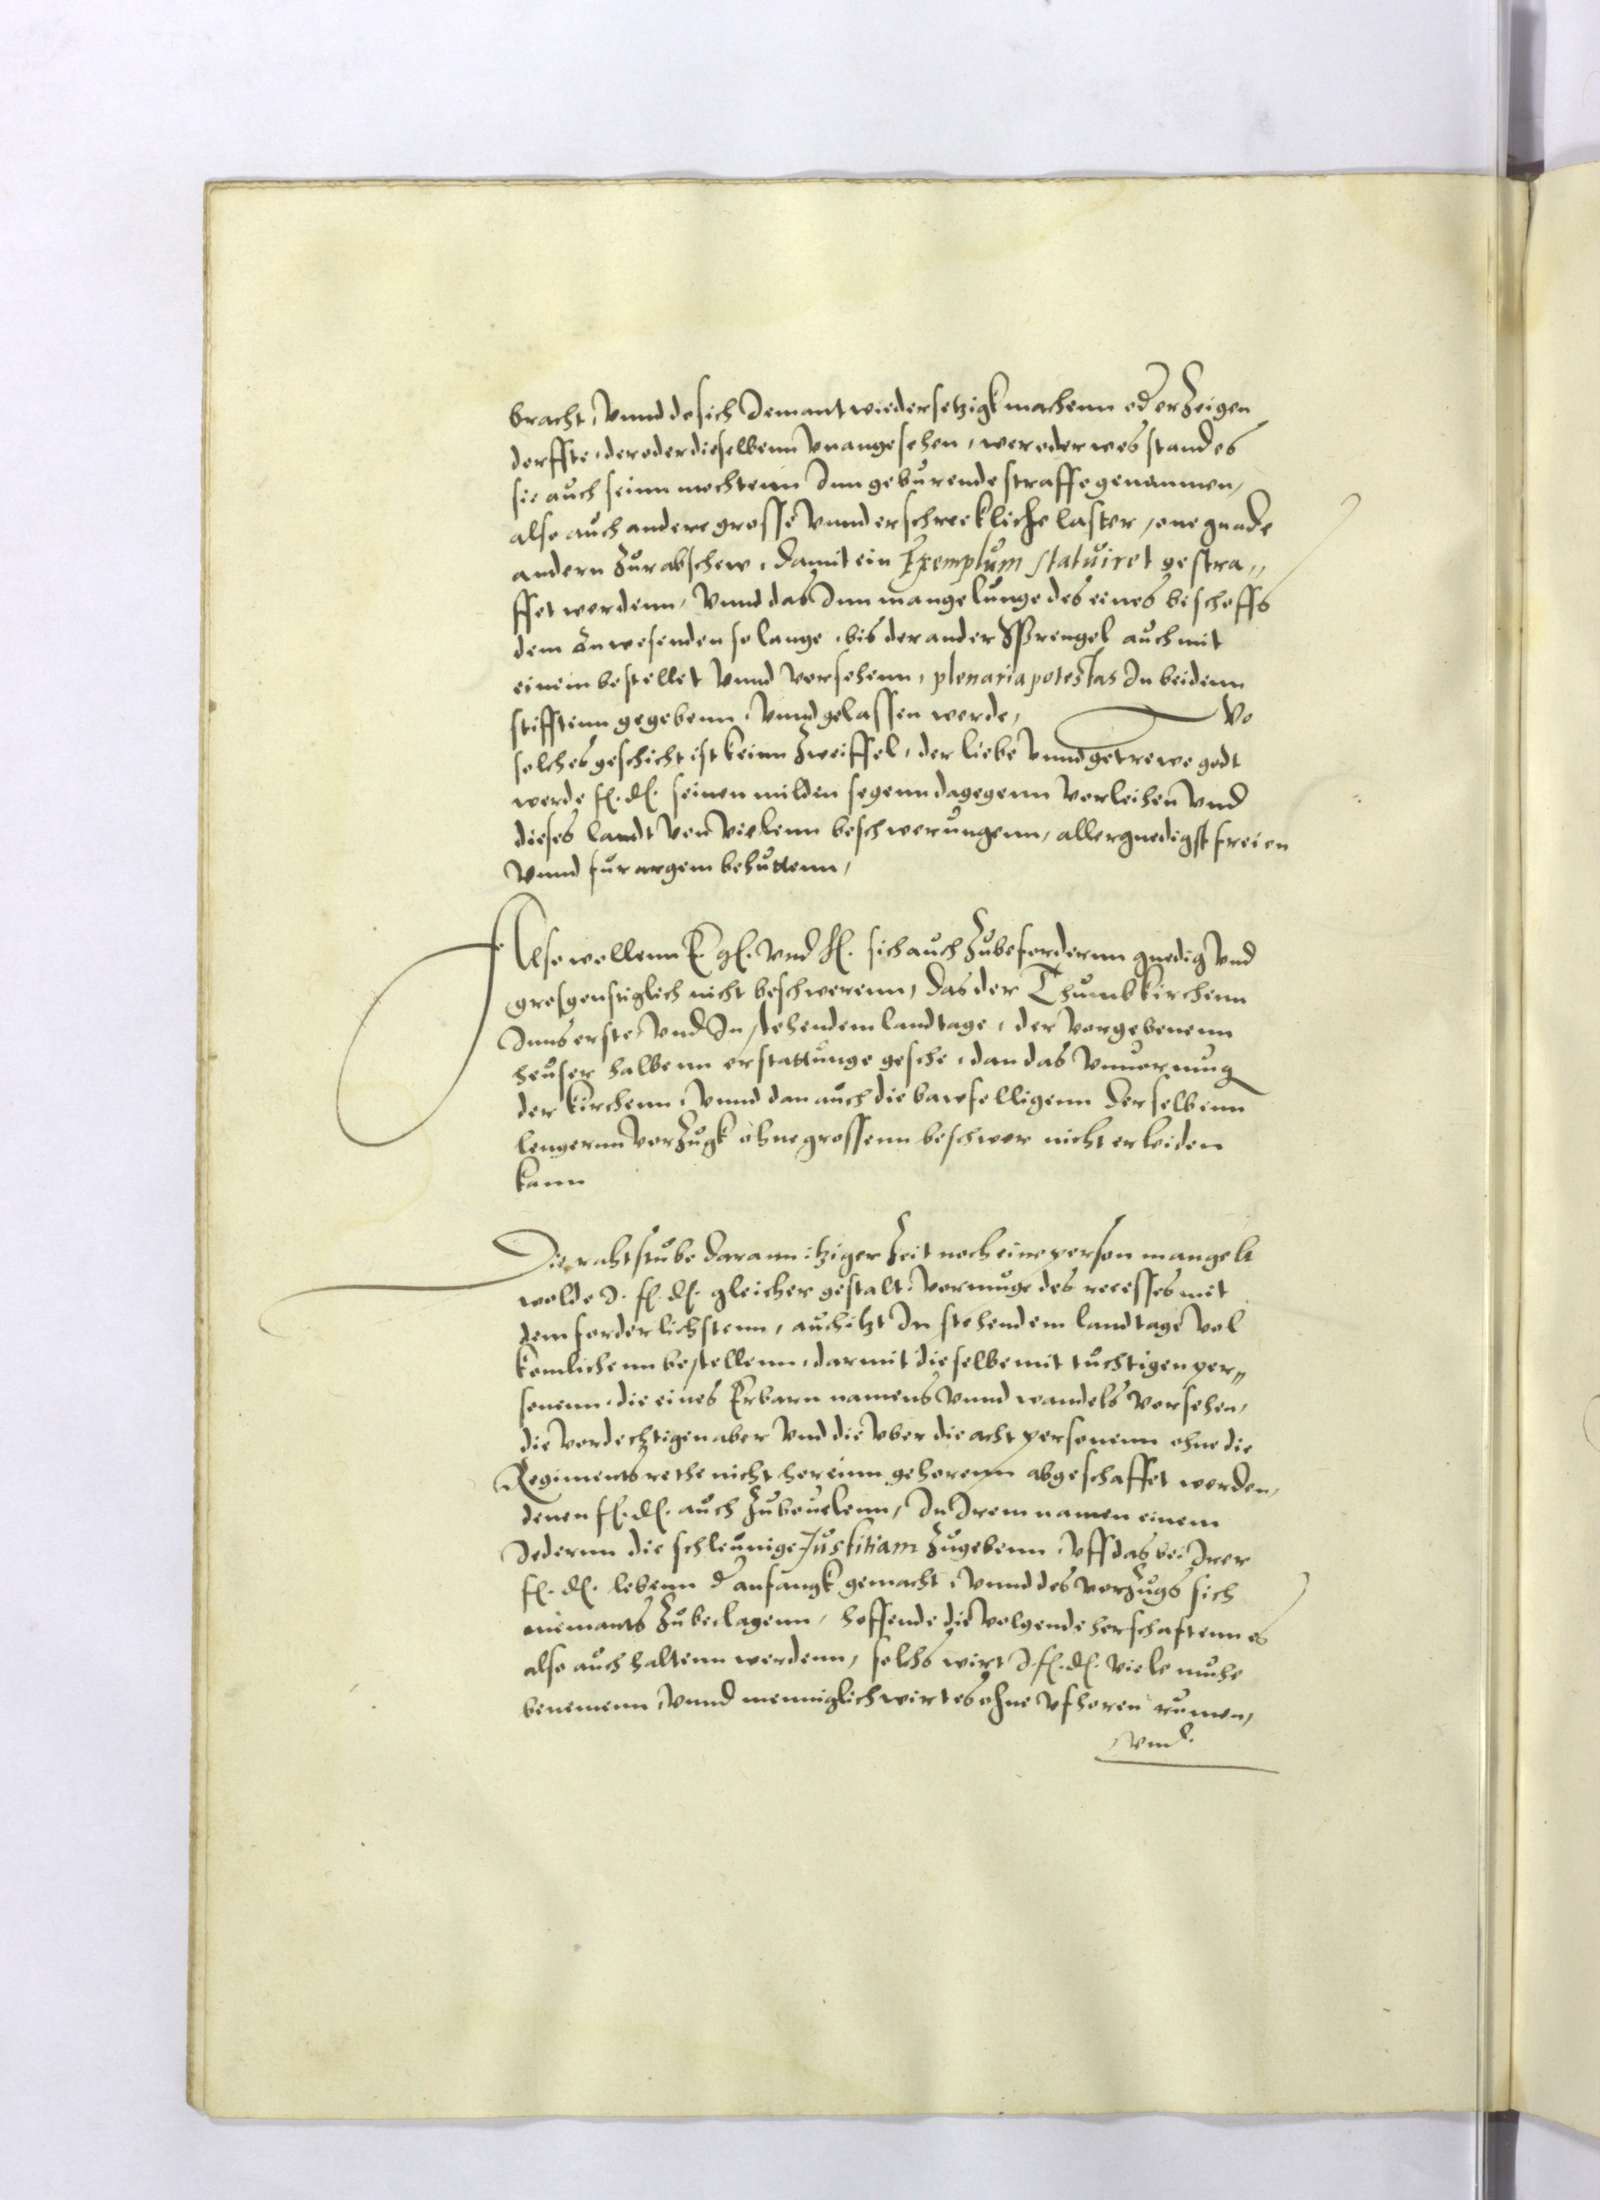 bracht, vnnd do sich Jemant wiedersetzigk machenn od erzeigen
dorffte, der oder dieselbenn vnangesehen, wer oder wes standes
sie auch seinn mochtenn Inn geburende straffe genommen,
also auch andere grosse vnnd erschreckliche laster, one gnade
andern zur abschew, damit ein Exemplum statuiret gestra„
ffet werdenn, vnnd das Inn mangelunge des eines bischoffs
dem Anwesenden so lange, bis der ander Sprengel auch mit
einem bestellet vnnd versehenn, plenaria potestas In beidenn
stifftenn gegebenn, vnnd gelassen werde, Wo
solches geschicht ist keinn zweiffel, der liebe vnnd getrewe godt
werde f. d. seinen milden segenn dagegenn verleihen vnd
dieses landt von vielenn beschwerungenn, allergnedigst freien
vnnd fur argem behuttenn,
Also wollenn E g. vnd h. sich auch zubefordernn gnedig vnd
grosgonstiglich nicht beschwerenn, das der Thumbkirchenn
Inns erste, vnd In stehendem landtage, der vorgebenenn
heuser halbenn erstattunge geschee, dan das vnuormug
der kirchenn, vnnd dan auch die bawfelligenn derselbenn
lengernn vorzugk ohne grossenn beschwer nicht erleiden
kann
Die rahtstube darann itziger zeit noch eine person mangelt
wolde I. f. d. gleicher gestalt, vermuge des recesses mit
dem forderlichstenn, auch itzt In stehendem landtage vol
komlichenn bestellenn, darmit dieselbe mit tuchtigen per„
sonenn, die eines Erbarn namens vnnd wandels versehen,
die verdechtigen aber vnd die vber die acht personenn ohne die
Regimentsrethe nicht hereinn gehorenn abgeschaffet werden,
denen f. d. auch zubeuelenn, In Irem namen einem
Jedernn die schleunige Justitiam zugebenn, vff das bei Irer
f. d. lebenn d anfangk gemacht, vnnd des verzugs sich
niemants zubeclagenn, hoffende die volgende herschafftenn es
also auch haltenn werdenn, solchs wirt I. f. d. viele muhe
benemenn, vnnd menniglich wirt es ohne vfhoren rumen,
vnd.